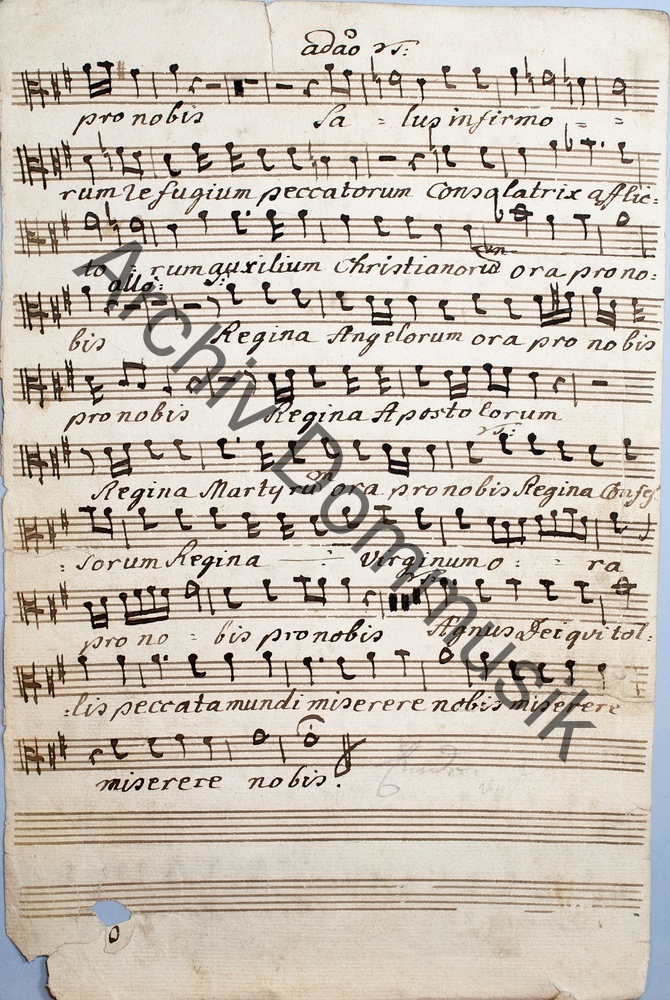 adåo vs:
pro nobis Sa - lus infirmo - -
rum refugium peccatorum Consolatrix afflic:
to : rum auxilium Christianorū ora pro no:
allo:
bis Regina Angelorum ora pro nobis
pro nobis Regina Apostolorum
Regina Martyrū ora pro nobis Regina Confes
: sorum Regina Virginum o : - ra
pro no - bis pro nobis Agnus Dei qui tol:
:lis peccata mundi miserere nobis miserere
miserere nobis.
Archiv Dommusik